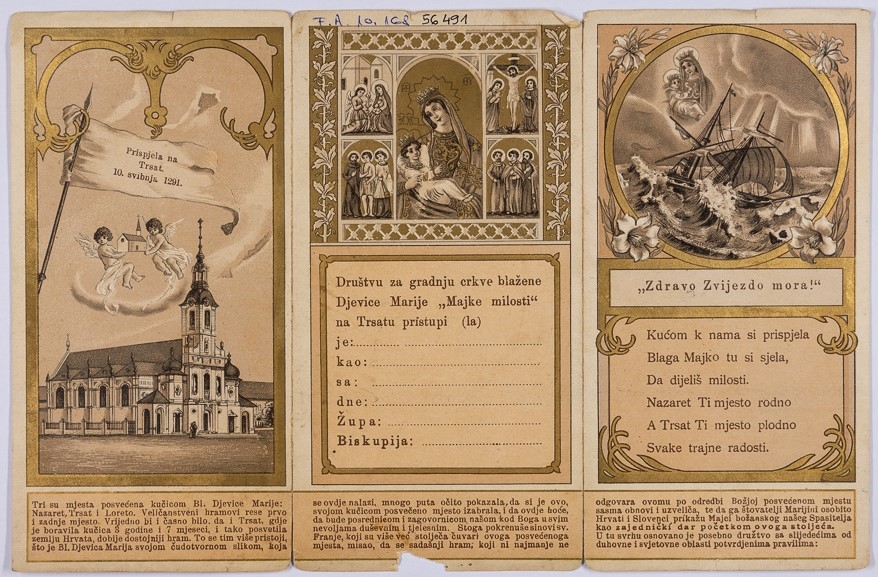 F. A 10. 168 56491
Prispjela na
Trsat.
10. svibnja 1291.
Društvu za gradnju crkve blažene
Djevice Marije „Majke milosti“
na Trsatu pristupi (la)
je:
kao:
sa:
dne:
Župa:
Biskupija:
„Zdravo Zvijezdo mora!“
Kućom k nama si prispjela
Blaga Majko tu si sjela,
Da dijeliš milosti.
Nazaret Ti mjesto rodno
A Trsat Ti mjesto plodno
Svake trajne radosti.
Tri su mjesta posvećena kućicom Bl. Djevice Marije:
Nazaret, Trsat i Loreto. Veličanstveni hramovi rese prvo
i zadnje mjesto. Vrijedno bi i časno bilo. da i Trsat, gdje
je boravila kućica 3 godine i 7 mjeseci, i tako posvetila
zemlju Hrvata, dobije dostojniji hram. To se tim više pristoji,
što je Bl. Djevica Marija svojom čudotvornom slikom, koja
se ovdje nalazi, mnogo puta očito pokazala, da si je ovo,
svojom kućicom posvećeno mjesto izabrala, i da ovdje hoće,
da bude posrednicom i zagovornicom našom kod Boga u svim
nevoljama duševnim i tjelesnim. Stoga pokrenuše sinovi sv.
Franje, koji su više već stoljeća čuvari ovoga posvećenoga
mjesta, misao, da se sadašnji hram; koji ni najmanje ne
odgovara ovomu po odredbi Božjoj posvećenom mjestu
sasma obnovi i uzveliča, te da ga štovatelji Marijini osobito
Hrvati i Slovenci prikažu Majci božanskog našeg Spasitelja
kao zajednički dar početkom ovoga stoljeća.
U tu svrhu osnovano je posebno društvo sa slijedećima od
duhovne i svjetovne oblasti potvrdjenima pravilima: